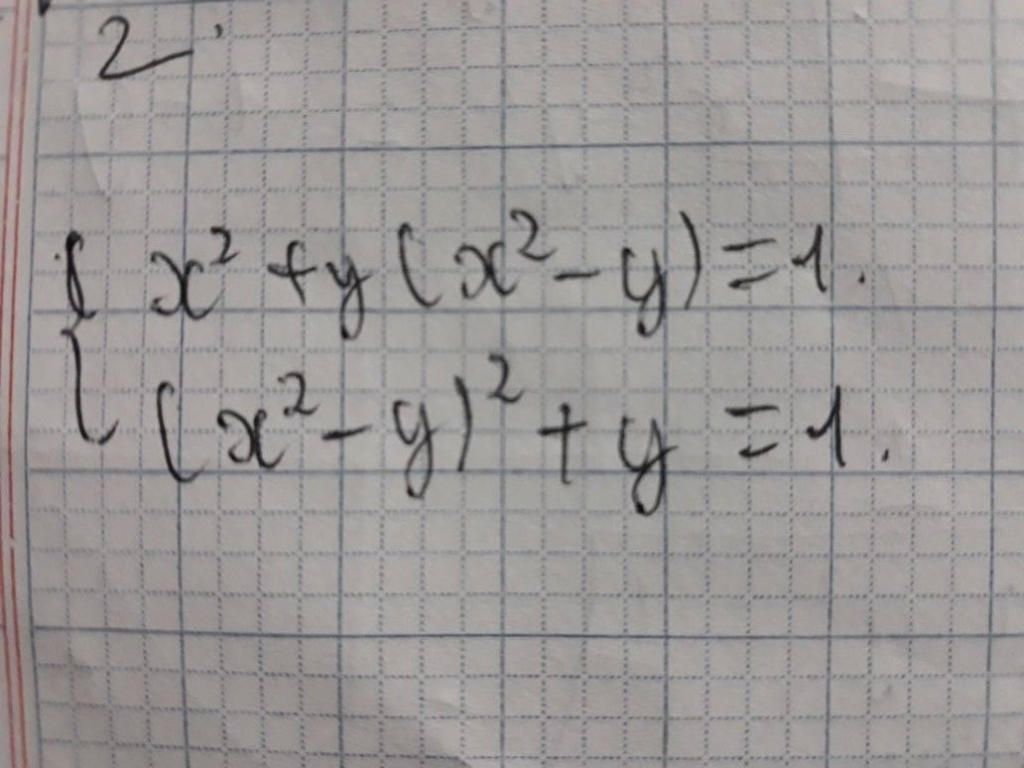 2.
{ x² + y (x² - y) = 1.
(x² - y)² + y = 1.